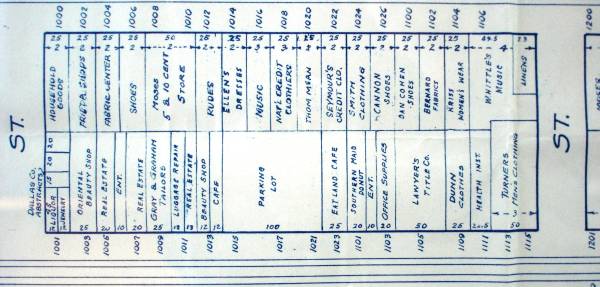 1000
1002
1004
1006
1008
1010
1012
1014
1016
1018
1020
1022
1024
1026
1100
1102
1104
1106
1200
25
25
25
25
50
25
25
25
25
25
25
25
25
25
25
25
HOUSEHOLD
GOODS
FABRIC CENTER
SHOES
MOSES
5 & 10 CENT
STORE
RUDES
ELLEN'S
DRESSES
MUSIC
NAT'L CREDIT
CLOTHIERS
THOM McAN
SEYMOUR'S
CREDIT CLO.
SMITH
CLOTHING
CANNON
SHOES
DAN COHEN
SHOES
BERNARD
FABRICS
KRISS
WOMEN'S WEAR
WHITTLE'S
MUSIC
LINENS
ST.
ST.
DALLAS CO.
ABSTRACTS
15
20
20
LIQUOR
JEWELRY
ORIENTAL
BEAUTY SHOP
REAL ESTATE
ENT.
REAL ESTATE
GRAY & GRAHAM
TAILORS
LUGGAGE REPAIR
REAL ESTATE
BEAUTY SHOP
CAFE
PARKING
LOT
EAT LAND CAFE
SOUTHERN MAID
DONUT
ENT.
OFFICE SUPPLIES
LAWYER'S
TITLE CO.
DUNN
CLOTHES
HEALTH INST.
TURNERS
MENS CLOTHING
25
20
10
20
25
12
12
100
25
20
10
20
50
25
50
1001
1003
1005
1007
1009
1011
1013
1015
1017
1021
1023
1101
1103
1105
1109
1111
1113
1115
1201